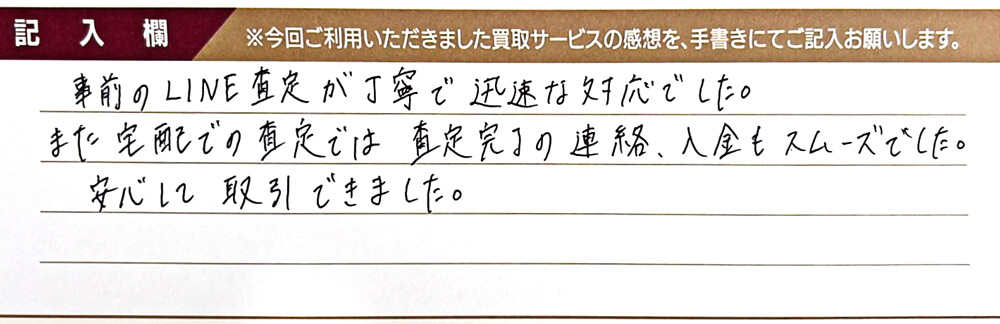 記入欄
※今回ご利用いただきました買取サービスの感想を、手書きにてご記入お願いします。
事前のLINE査定が丁寧で迅速な対応でした。
また宅配での査定では査定完了の連絡、入金もスムーズでした。
安心して取引できました。